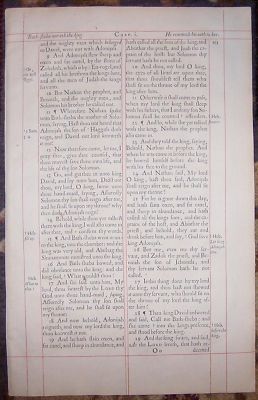 Bath-sheba moveth the king,
CHAP. i.
He renueth his oath to her.
and the mighty men which belonged
to David, were not with Adonijah.
9 And Adonijah slew sheep and
oxen and fat cattel, by the stone of
Zoheleth, which is by En-rogel, and
called all his brethren the kings sons,
and all the men of Judah the kings
servants.
10 But Nathan the prophet, and
Benaiah, and the mighty men, and
Solomon his brother he called not.
11 ¶ Wherefore Nathan spake
unto Bath-sheba the mother of Solo-
mon, saying, Hast thou not heard that
Adonijah the son of Haggith doth
reign, and David our lord knoweth
it not?
12 Now therefore come, let me, I
pray thee, give thee counsel, that
thou mayest save thine own life, and
the life of thy son Solomon.
13 Go, and get thee in unto king
David, and say unto him, Didst not
thou, my lord, O king, swear unto
thine hand-maid, saying, Assuredly
Solomon thy son shall reign after me,
and he shall sit upon my throne? why
then doth Adonijah reign?
14 Behold, while thou yet talkest
there with the king, I will also come in
after thee, and confirm thy words.
15 ¶ And Bath-sheba went in un-
to the king, into the chamber: and the
king was very old, and Abishag the
Shunammite ministred unto the king.
16 And Bath-sheba bowed, and
did obeisance unto the king: and the
king said, What wouldst thou?
17 And she said unto him, My
lord, thou swarest by the LORD thy
God unto thine hand-maid, saying,
Assuredly Solomon thy son shall
reign after me, and he shall sit upon
my throne:
18 And now behold, Adonijah
reigneth, and now my lord the king,
thou knowest it not.
19 And he hath slain oxen, and
fat cattel, and sheep in abundance, and
hath called all the sons of the king, and
Abiathar the priest, and Joab the cap-
tain of the host: but Solomon thy
servant hath he not called.
20 And thou, my lord O king,
the eyes of all Israel are upon thee,
that thou shouldest tell them who
shall sit on the throne of my lord the
king after him.
21 Otherwise it shall come to pass,
when my lord the king shall sleep
with his fathers, that I and my son So-
lomon shall be counted offenders.
22 ¶ And lo, while she yet talked
with the king, Nathan the prophet
also came in.
23 And they told the king, saying,
Behold, Nathan the prophet. And
when he was come in before the king,
he bowed himself before the king
with his face to the ground.
24 And Nathan said, My lord
O king, hast thou said, Adonijah
shall reign after me, and he shall sit
upon my throne?
25 For he is gone down this day,
and hath slain oxen, and fat cattel,
and sheep in abundance, and hath
called all the kings sons, and the cap-
tains of the host, and Abiathar the
priest; and behold, they eat and
drink before him, and say, God save
king Adonijah.
26 But me, even me thy ser-
vant, and Zadok the priest, and Be-
naiah the son of Jehoiada, and thy
servant Solomon hath he not
called.
27 Is this thing done by my lord
the king, and thou hast not shewed
it unto thy servant, who should sit on
the throne of my lord the king af-
ter him?
28 ¶ Then king David answered
and said, Call me Bath-sheba: and
she came into the kings presence,
and stood before the king.
29 And the king sware, and said,
As the LORD liveth, that hath re-
deemed